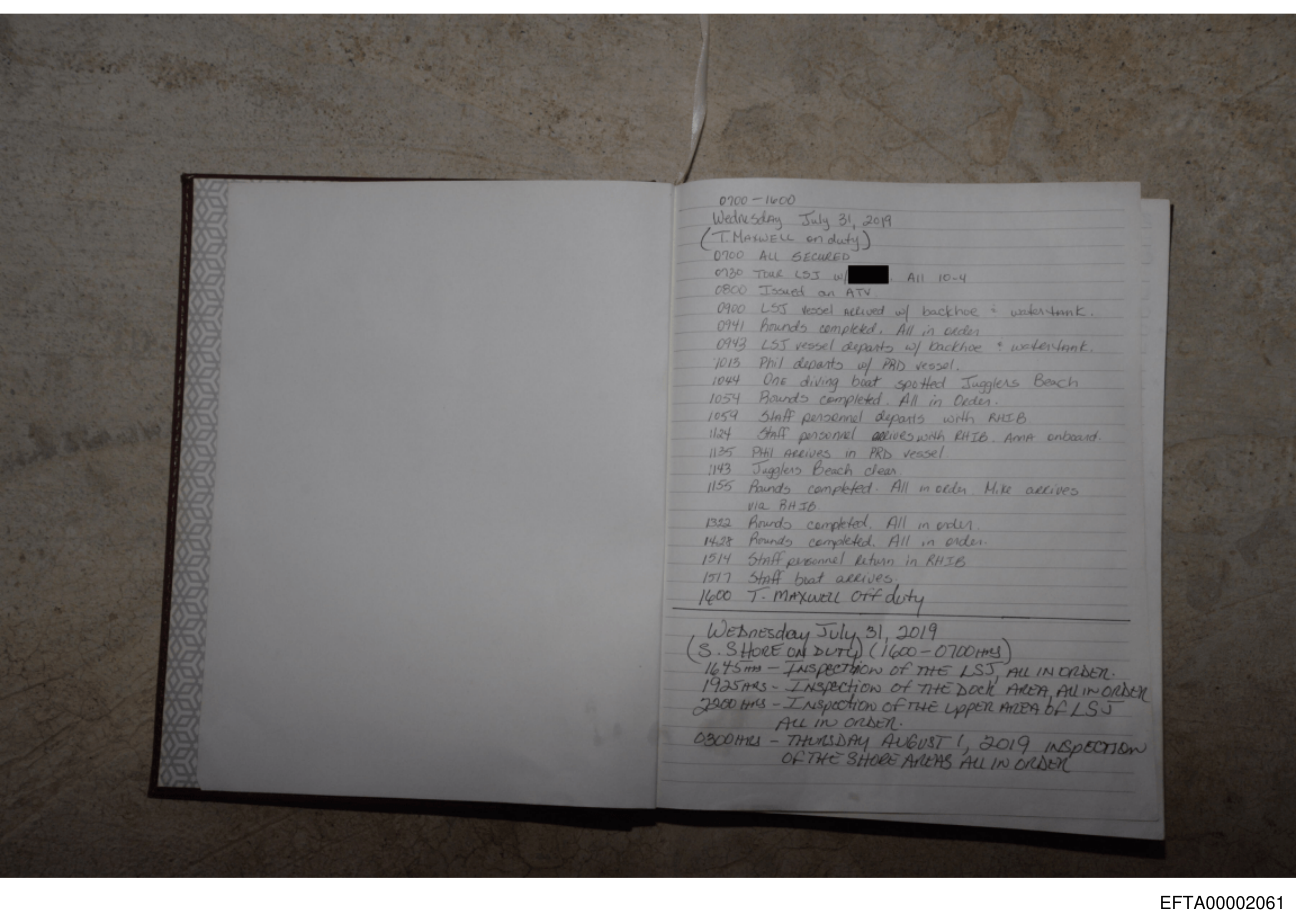 0700-1600
Wednesday July 31, 2019
(T. MAXWELL on duty)
0700 ALL SECURED
0730 TOUR LSJ w/ . All 10-4
0800 Issued an ATV
0900 LSJ vessel arrived w/ backhoe & watertank.
0941 Rounds completed. All in order
0943 LSJ vessel departs w/ backhoe & watertank.
1013 Phil departs w/ PRD vessel.
1044 One diving boat spotted Jugglers Beach
1054 Rounds completed. All in Order.
1059 Staff personnel departs with RHIB.
1124 Staff personnel arrives with RHIB. Anna onboard.
1135 Phil ARRIVES in PRD vessel
1143 Jugglers Beach clear.
1155 Rounds completed. All in order. Mike arrives
via RHIB
1322 Rounds completed. All in order.
1428 Rounds completed. All in order.
1514 Staff personnel Return in RHIB
1517 Staff boat arrives.
1600 T. MAXWELL Off duty
WEDnesday July 31, 2019
(S. SHORE ON DUTY) (1600-0700HRS)
1645HRS - INSPECTION OF THE LSJ, ALL IN ORDER.
1925HRS - INSPECTION OF THE DOCK AREA, ALL IN ORDER
2200HRS - INSPECTION OF THE UPPER AREA OF LSJ
ALL IN ORDER.
0300HRS - THURSDAY AUGUST 1, 2019 INSPECTION
OF THE SHORE AREAS ALL IN ORDER
EFTA00002061